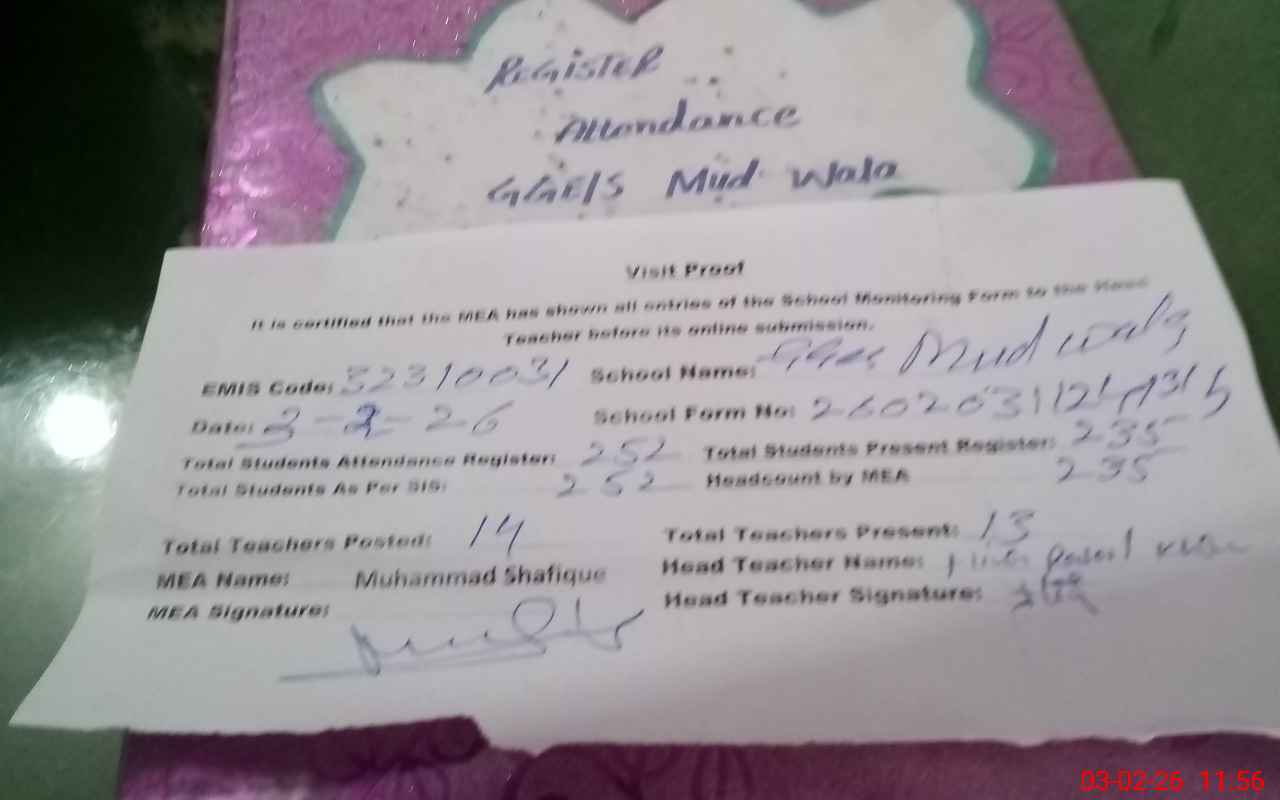 REGISTER
Attendance
GGE/S Mud Wala
Visit Proof
It is certified that the MEA has shown all entries of the School Monitoring Form to the Head
Teacher before its online submission.
EMIS Code: 32310031 School Name: GGES Mud wala
Date: 3-2-26 School Form No:
Total Students Attendance Register: 252 Total Students Present Register: 235
Total Students As Per SIS: 252 Headcount by MEA 235
Total Teachers Posted: 14 Total Teachers Present: 13
MEA Name: Muhammad Shafique Head Teacher Name:
MEA Signature: Head Teacher Signature:
03-02-26 11:56